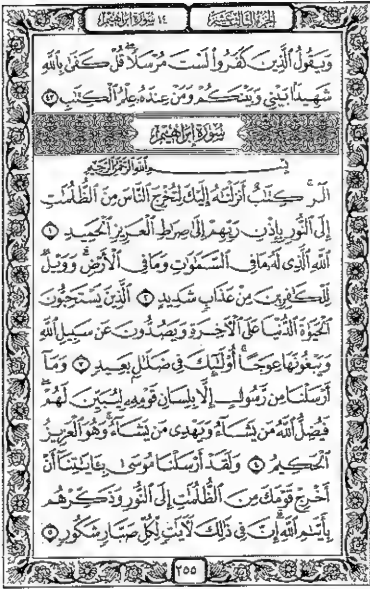 الجزء الثالث عشر
١٤ سورة إبراهيم
وَيَقُولُ الَّذِينَ كَفَرُوا لَسْتَ مُرْسَلًا قُلْ كَفَىٰ بِاللَّهِ
شَهِيدًا بَيْنِي وَبَيْنَكُمْ وَمَنْ عِندَهُ عِلْمُ الْكِتَٰبِ ٤٣
سُورَةُ إِبْرَاهِيمَ
بِسْمِ اللَّهِ الرَّحْمَٰنِ الرَّحِيمِ
الٓر ۚ كِتَٰبٌ أَنزَلْنَٰهُ إِلَيْكَ لِتُخْرِجَ النَّاسَ مِنَ الظُّلُمَٰتِ
إِلَى النُّورِ بِإِذْنِ رَبِّهِمْ إِلَىٰ صِرَٰطِ الْعَزِيزِ الْحَمِيدِ ١
اللَّهِ الَّذِي لَهُ مَا فِي السَّمَٰوَٰتِ وَمَا فِي الْأَرْضِ ۗ وَوَيْلٌ
لِّلْكَٰفِرِينَ مِنْ عَذَابٍ شَدِيدٍ ٢ الَّذِينَ يَسْتَحِبُّونَ
الْحَيَوٰةَ الدُّنْيَا عَلَى الْآخِرَةِ وَيَصُدُّونَ عَن سَبِيلِ اللَّهِ
وَيَبْغُونَهَا عِوَجًا ۚ أُولَٰئِكَ فِي ضَلَٰلٍ بَعِيدٍ ٣ وَمَا
أَرْسَلْنَا مِن رَّسُولٍ إِلَّا بِلِسَانِ قَوْمِهِ لِيُبَيِّنَ لَهُمْ ۖ
فَيُضِلُّ اللَّهُ مَن يَشَاءُ وَيَهْدِي مَن يَشَاءُ ۚ وَهُوَ الْعَزِيزُ
الْحَكِيمُ ٤ وَلَقَدْ أَرْسَلْنَا مُوسَىٰ بِـَٔايَٰتِنَا أَنْ
أَخْرِجْ قَوْمَكَ مِنَ الظُّلُمَٰتِ إِلَى النُّورِ وَذَكِّرْهُم
بِأَيَّىٰمِ اللَّهِ ۚ إِنَّ فِي ذَٰلِكَ لَآيَٰتٍ لِّكُلِّ صَبَّارٍ شَكُورٍ ٥
٢٥٥